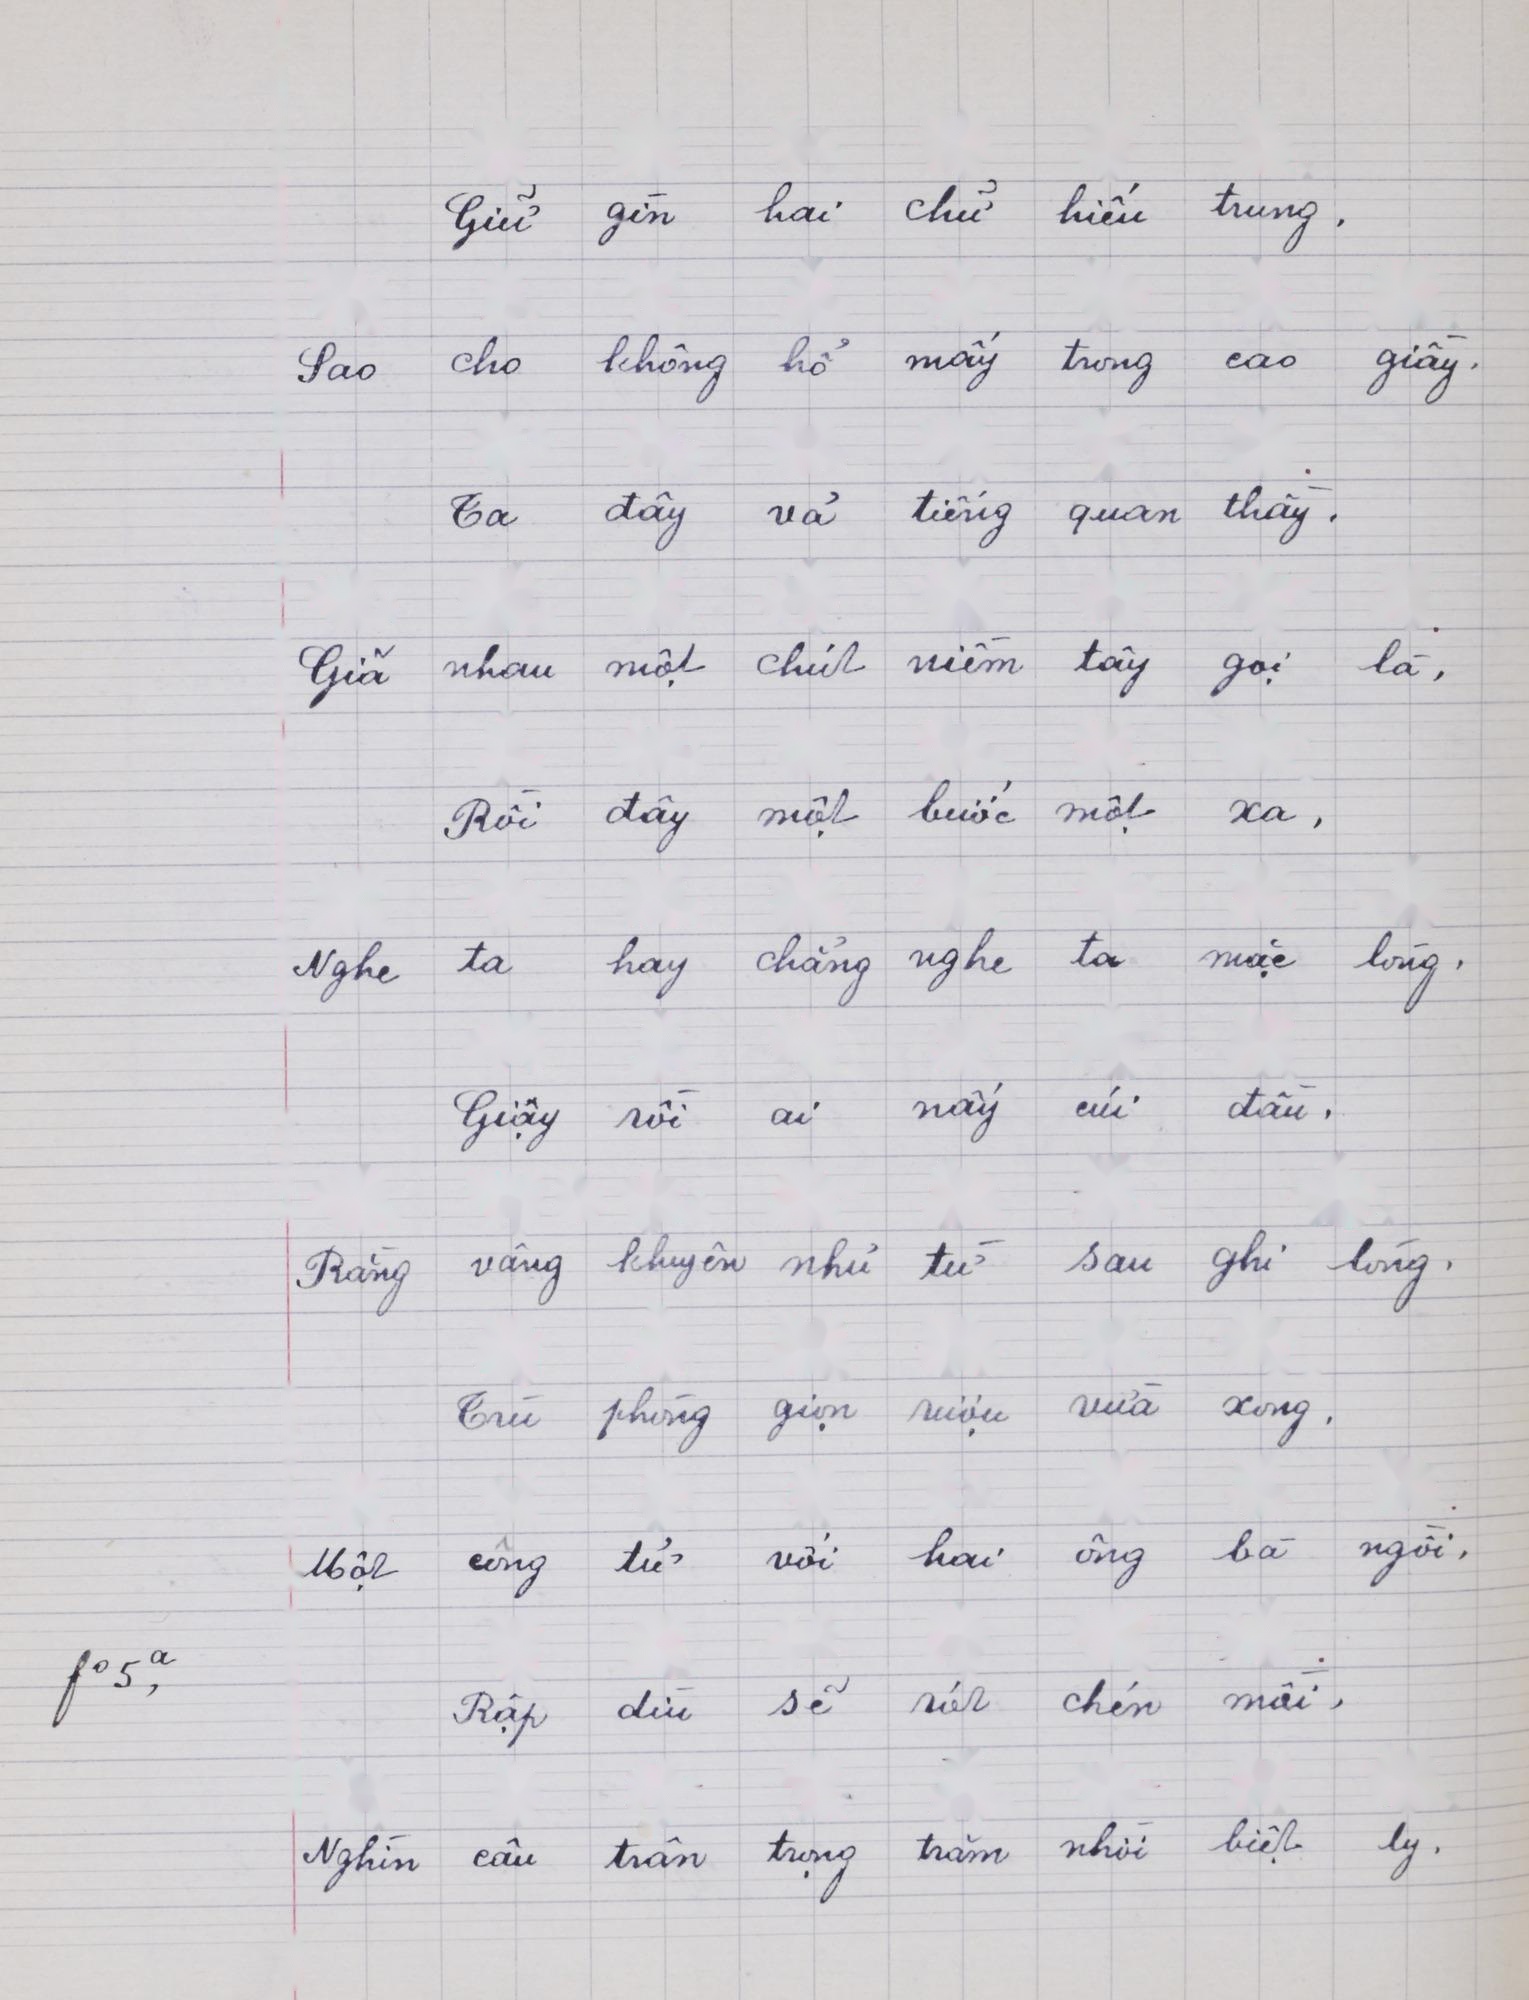 Giữ gìn hai chữ hiếu trung,
Sao cho không hổ mấy trong cao giầy.
Ta đây vả tiếng quan thầy,
Giã nhau một chút niềm tây gọi là,
Rồi đây một bước một xa,
Nghe ta hay chẳng nghe ta mặc lòng.
Giậy rồi ai nấy cúi đầu,
Rằng vâng khuyên nhủ từ sau ghi lòng.
Trù phòng giọn rượu vừa xong,
Một công tử với hai ông bà ngồi.
fº 5ª, Rập dìu sẽ rót chén mồi,
Nghìn câu trân trọng trăm nhời biệt ly.